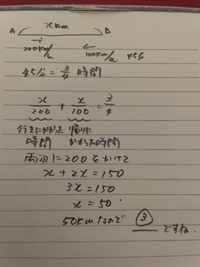 x km
A B
→ ←
200km/h 100km/h 45分
45分 = 3/4 時間
x/200 + x/100 = 3/4
行きにかかった 帰りに
時間 かかった時間
両辺に200をかけて
x + 2x = 150
3x = 150
x = 50
50kmなので ③ ですね